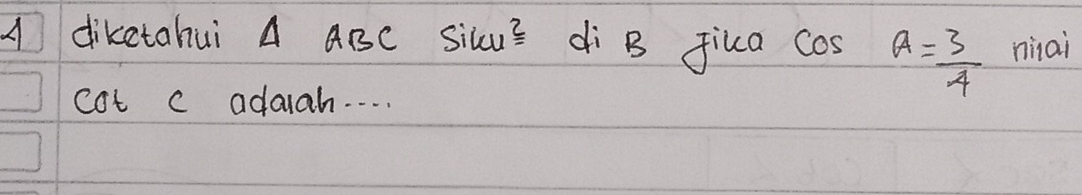 4 diketahui Δ ABC siku² di B jika cos A = 3/4 nilai
cot C adalah....